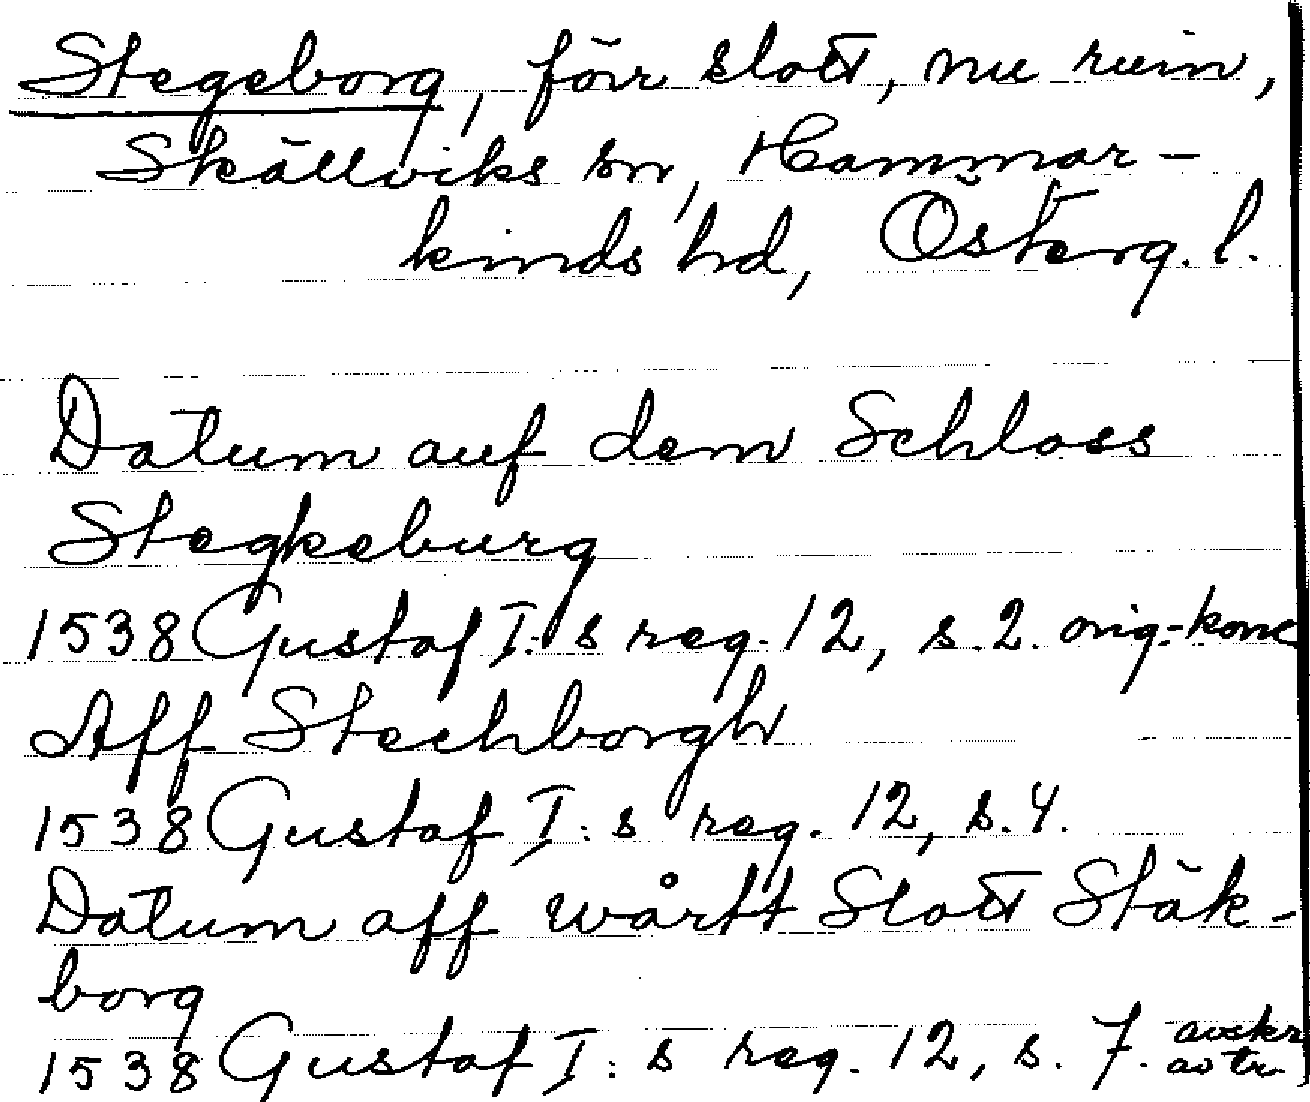 Stegeborg, förr slott, nu ruin,
Skällviks sn, Hammar-
kinds hd, Österg. l.
Datum auf dem Schloss
Stegkeburg
1538 Gustaf I:s reg. 12, s. 2. orig.-konc
Aff Stechborgh
1538 Gustaf I:s reg. 12, s. 4.
Datum aff wårtt Slott Stäk-
borg
1538 Gustaf I:s reg. 12, s. 7. avskr
av tr.